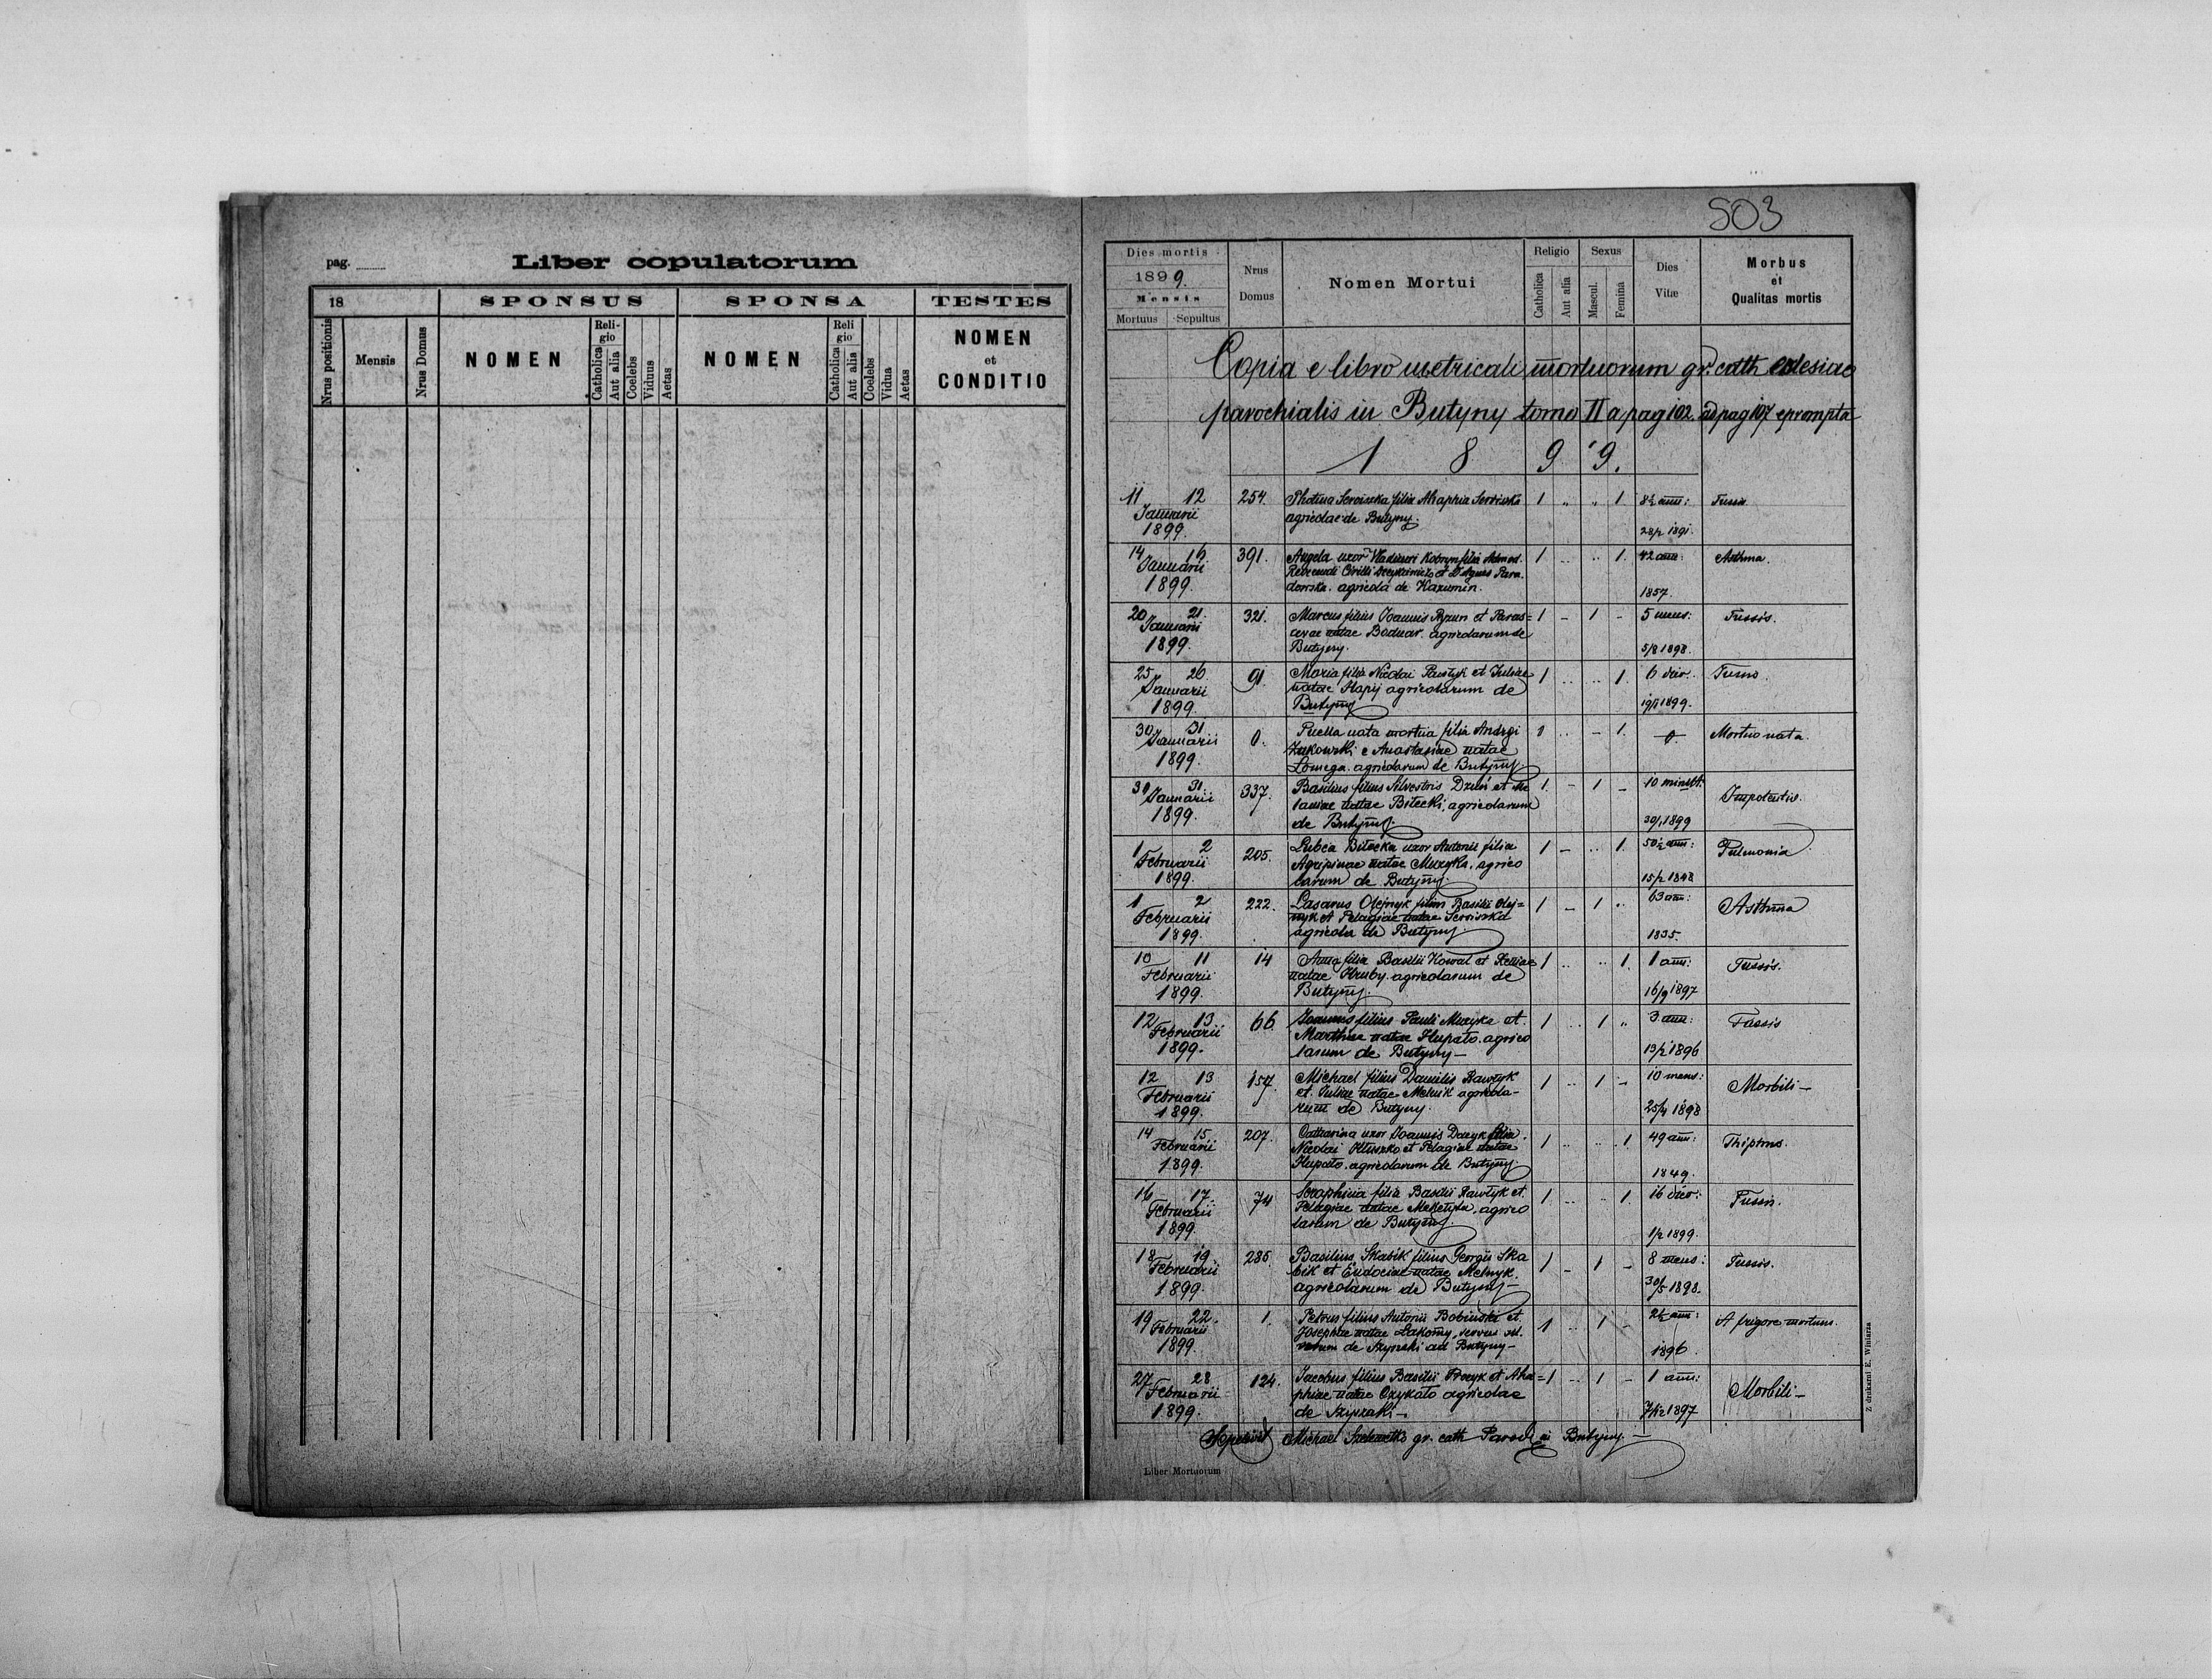 pag.
Liber copulatorum
18
SPONSUS
SPONSA
TESTES
Nrus positionis
Mensis
Nrus Domus
NOMEN
Religio
Catholica
Aut alia
Coelebs
Viduus
Aetas
NOMEN
Religio
Catholica
Aut alia
Coelebs
Vidua
Aetas
NOMEN
et
CONDITIO
503
Dies mortis
1899.
Mensis
Mortuus Sepultus
Nrus
Domus
Nomen Mortui
Religio
Catholica
Aut alia
Sexus
Mascul.
Femina
Dies
Vitæ
Morbus
et
Qualitas mortis
Copia e libro metricali mortuorum gr. cath eclesiae
parochialis in Butyny tomo II a pag 102. ad pag 107 eprompta
1899.
11 12 254. filia 1 1 8½ ann:
Januarii agricolae de Butyny.
1899. 28/2 1891.
14 16 391. Angela uxor 1 1. 42 ann: Asthma.
Januarii
1899. agricola de 1857.
20 21. 321. Marcus filius Joannis et Paras= 1 1 5 mens: Tussis.
Januarii cevae natae Bodnar. agricolarum de
1899. Butyny. 5/8 1898.
25 26. 91. Maria filia Nicolai et Juliae 1 1 6
Januarii natae agricolarum de
1899. Butyny 19/1 1899.
30 31 0. Puella nata mortua filia 1 1. 0. Mortuo nata.
Januarii Żukowski e Anastasiae natae
1899. agricolarum de Butyny.
30 31 337. Basilius filius Silvestris et Me 1. 1 10 minut.
Januarii laniae natae Bilecki, agricolarum
1899. de Butyny. 30/1 1899
1 2 205. Bilecka uxor Antonii filia 1 1. 50½ ann: Pulmonia
Februarii Agripinae natae Muzyka, agrico
1899. larum de Butyny. 15/2 1848
1 2 222. Lasarus Olejnyk filius Basilii Olej= 1 1 63 ann: Asthma
Februarii nyk et Pelagiae natae
1899. agricola de Butyny. 1835.
10 11 14 Anna filia Basilii Kowal et 1 1. 1 ann: Tussis.
Februarii natae Hruby. agricolarum de
1899. Butyny. 16/9 1897
12 13 66. Joannes filius Pauli Muzyka et. 1 1 3 ann: Tussis
Februarii Marthae natae Hupało. agrico
1899. larum de Butyny — 13/2 1896
12 13 157. Michael filius Danilis Pawłyk 1 1 10 mens: Morbili —
Februarii et. Juliae natae Melnik agricola-
1899. rum de Butyny. 25/4 1898
14 15. 207. Catharina uxor Joannis filia. 1 1 49 ann:
Februarii Nicolai et Pelagiae natae
1899. Hupało. agricolarum de Butyny 1849.
16 17. 74 Seraphina filia Basilii Pawłyk et. 1 1. 16 Tussis.
Februarii Pelagiae natae agrico
1899 larum de Butyny. 1/2 1899.
18 19 285. Basilius Skabik filius Georgii Ska 1 1 8 mens: Tussis.
Februarii bik et Eudociae natae Melnyk.
1899. agricolarum de Butyny — 30/5 1898.
19 22. 1. Petrus filius Antonii Bobinski et. 1 1 2½ ann: A frigore mortuus.
Februarii Josephae natae Łakomy,
1899. de ad Butyny — 1896.
27 28 124. Jacobus filius Basilii et Aha= 1 1 1 ann: Morbili —
Februarii phiae natae agricolae
1899. de 7/12 1897
Michael gr. cath Paroch in Butyny. —
Liber Mortuorum
Z drukarni E. Winiarza